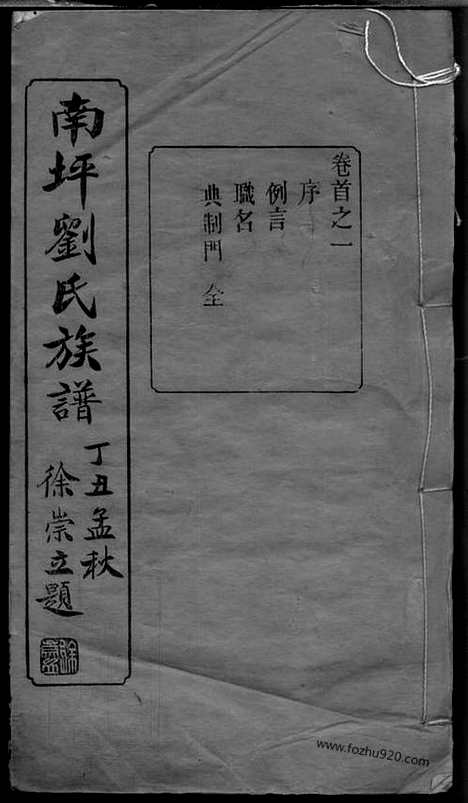 卷首之一
序
例言
職名
典制門 全
南坪劉氏族譜
丁丑孟秋
徐崇立題
www.fozhu920.com